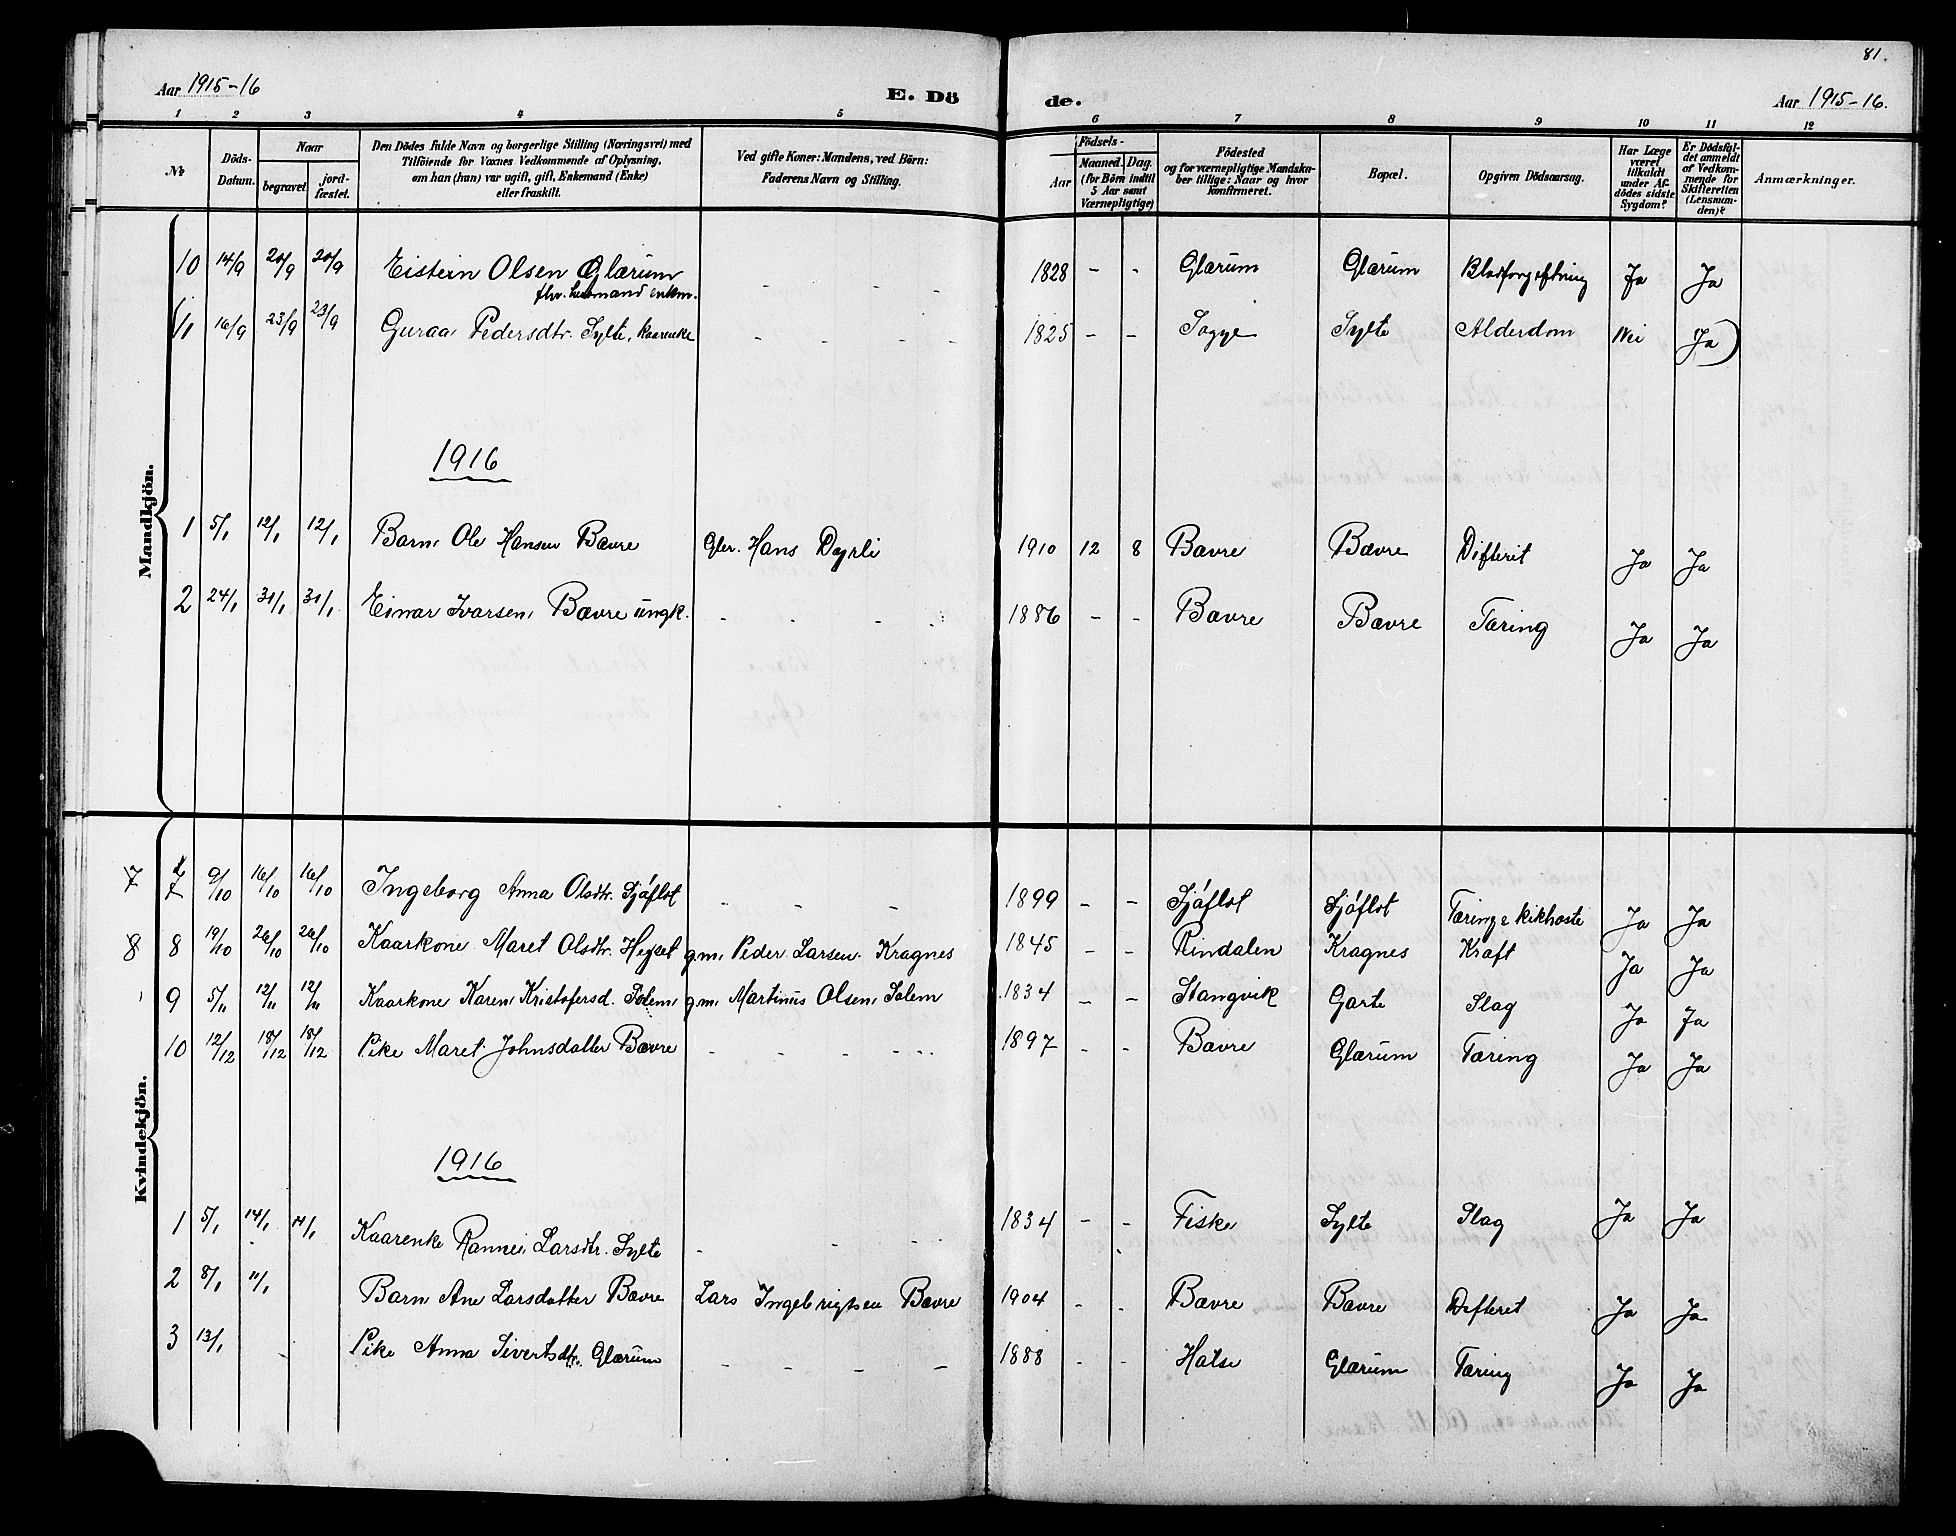 81.
Aar 1915-16 E. Dö de. Aar 1915-16.
1 2 3 4 5 6 7 8 9 10 11 12
№ Döds-Datum. Naar begravet. jordfæstet. Den Dödes fulde Navn og borgerlige Stilling (Næringsvei) med Tilföiende for Voxnes Vedkommende af Oplysning, om han (hun) var ugift, gift, Enkemand (Enke) eller fraskilt. Ved gifte Koner: Mandens, ved Börn: Faderens Navn og Stilling. Födsels- Aar Maaned. Dag. (for Börn indtil 5 Aar samt Værnepligtige) Födested og for værnepligtige Mandskaber tillige: Naar og hvor konfirmeret. Bopæl. Opgiven Dödsaarsag. Har Læge været tilkaldt under Afdödes sidste Sygdom? Er Dödsfaldet anmeldt af Vedkommende for Skifteretten (Lensmanden)? Anmærkninger.
Mandkjön.
10 14/9 20/9 20/9 Eistein Olsen Glærum - - - 1828 - - Glærum Glærum Blodforgiftning Ja Ja
fhv. husmand enkm.
11 16/9 23/9 23/9 Guraa Pedersdtr. Sylte, kaarenke - - - - 1825 - - Sogge Sylte Alderdom Nei Ja)
1916
1 5/1 12/1 12/1 Barn Ole Hansen Bævre Hans Dyrli 1910 12 8 Bævre Bævre Difterit Ja Ja
2 24/1 31/1 31/1 Einar Ivarsen Bævre ungk. - - - - 1886 - - Bævre Bævre Tæring Ja Ja
Kvindekjön.
7 7 9/10 16/10 16/10 Ingeborg Anna Olsdtr. Sjøflot - - - 1899 - - Sjøflot Sjøflot Tæring & kikhoste Ja Ja
8 8 19/10 26/10 26/10 Kaarkone Maret Olsdtr. g.m. Peder Larsen Kragnes 1845 - - Rindalen Kragnes Kræft Ja Ja
9 5/11 12/11 12/11 Kaarkone Karen Kristofersd. Solem g.m. Martinus Olsen Solem 1834 - - Stangvik Garte Slag Ja Ja
10 12/12 18/12 18/12 Pike Maret Johnsdatter Bævre - - - - 1897 - - Bævre Glærum Tæring Ja Ja
1916
1 5/1 14/1 14/1 Kaarenke Rannei Larsdtr. Sylte - - - 1834 - - Fiske Sylte Slag Ja Ja
2 8/1 11/1 Barn Ane Larsdatter Bævre Lars Ingebrigtsen Bævre 1904 - - Bævre Bævre Difterit Ja Ja
3 13/1 Pike Anna Sivertsdtr. Glærum - - - - 1888 - - Halse Glærum Tæring Ja Ja